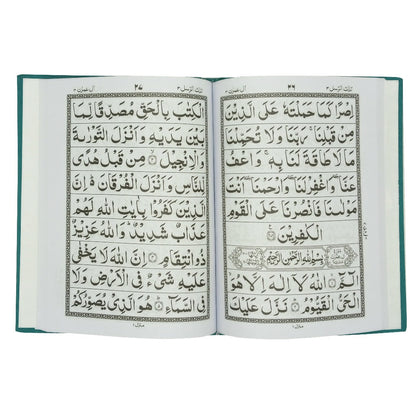 تلك الرسل ٣ ٢٦ آل عمرٰن ٣
اِصْرًا كَمَا حَمَلْتَهٗ عَلَى الَّذِيْنَ
مِنْ قَبْلِنَا ۚ رَبَّنَا وَلَا تُحَمِّلْنَا
مَا لَا طَاقَةَ لَنَا بِهٖ ۚ وَاعْفُ
عَنَّا وَاغْفِرْلَنَا وَارْحَمْنَا اَنْتَ
مَوْلٰىنَا فَانْصُرْنَا عَلَى الْقَوْمِ
الْكٰفِرِيْنَ
بِسْمِ اللّٰهِ الرَّحْمٰنِ الرَّحِيْمِ
الٓمّٓ اللّٰهُ لَآ اِلٰهَ اِلَّا هُوَ
الْحَيُّ الْقَيُّوْمُ نَزَّلَ عَلَيْكَ
منزل ١
تلك الرسل ٣ ٢٧ آل عمرٰن ٣
الْكِتٰبَ بِالْحَقِّ مُصَدِّقًا لِّمَا
بَيْنَ يَدَيْهِ وَاَنْزَلَ التَّوْرٰىةَ
وَالْاِنْجِيْلَ مِنْ قَبْلُ هُدًى
لِّلنَّاسِ وَاَنْزَلَ الْفُرْقَانَ اِنَّ
الَّذِيْنَ كَفَرُوْا بِاٰيٰتِ اللّٰهِ لَهُمْ
عَذَابٌ شَدِيْدٌ وَاللّٰهُ عَزِيْزٌ
ذُو انْتِقَامٍ اِنَّ اللّٰهَ لَا يَخْفٰى
عَلَيْهِ شَيْءٌ فِى الْاَرْضِ وَلَا
فِى السَّمَآءِ هُوَ الَّذِيْ يُصَوِّرُكُمْ
منزل ١